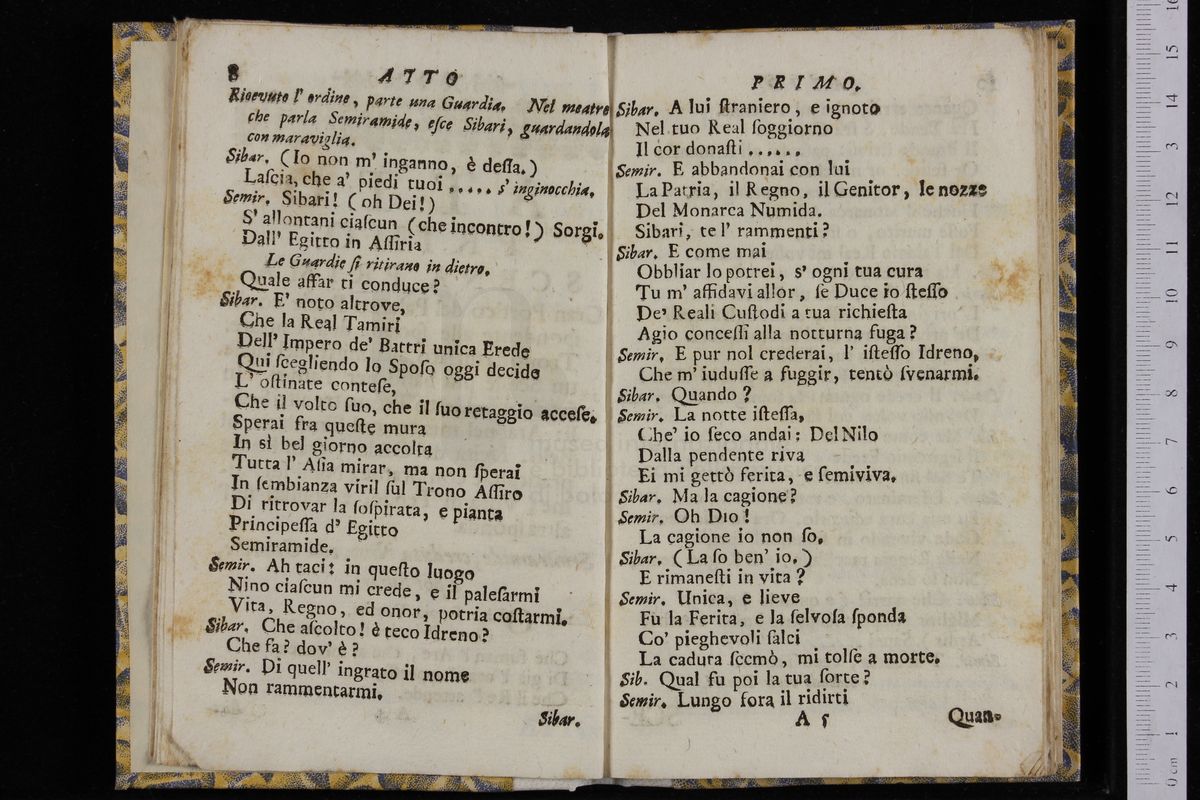 8 ATTO
Ricevuto l' ordine, parte una Guardia. Nel mentre
che parla Semiramide, eſce Sibari, guardandola
con maraviglia.
Sibar. (Io non m' inganno, è deſſa.)
Laſcia, che a' piedi tuoi ..... s' inginocchia.
Semir. Sibari! (oh Dei!)
S' allontani ciaſcun (che incontro!) Sorgi.
Dall' Egitto in Aſſiria
Le Guardie ſi ritirano in dietro.
Quale affar ti conduce?
Sibar. E' noto altrove,
Che la Real Tamiri
Dell' Impero de' Battri unica Erede
Qui ſcegliendo lo Spoſo oggi decide
L' oſtinate conteſe,
Che il volto ſuo, che il ſuo retaggio acceſe.
Sperai fra queſte mura
In sì bel giorno accolta
Tutta l' Aſia mirar, ma non ſperai
In ſembianza viril ſul Trono Aſſiro
Di ritrovar la ſoſpirata, e pianta
Principeſſa d' Egitto
Semiramide.
Semir. Ah taci: in queſto luogo
Nino ciaſcun mi crede, e il paleſarmi
Vita, Regno, ed onor, potria coſtarmi.
Sibar. Che aſcolto! è teco Idreno?
Che fa? dov' è?
Semir. Di quell' ingrato il nome
Non rammentarmi.
Sibar.
PRIMO.
Sibar. A lui ſtraniero, e ignoto
Nel tuo Real ſoggiorno
Il cor donaſti ......
Semir. E abbandonai con lui
La Patria, il Regno, il Genitor, le nozze
Del Monarca Numida.
Sibari, te l' rammenti?
Sibar. E come mai
Obbliar lo potrei, s' ogni tua cura
Tu m' affidavi allor, ſe Duce io ſteſſo
De' Reali Cuſtodi a tua richieſta
Agio conceſſi alla notturna fuga?
Semir. E pur nol crederai, l' iſteſſo Idreno,
Che m' iuduſſe a fuggir, tentò ſvenarmi.
Sibar. Quando?
Semir. La notte iſteſſa,
Che' io ſeco andai: Del Nilo
Dalla pendente riva
Ei mi gettò ferita, e ſemiviva.
Sibar. Ma la cagione?
Semir. Oh Dio!
La cagione io non ſo.
Sibar. (La ſo ben' io.)
E rimaneſti in vita?
Semir. Unica, e lieve
Fu la Ferita, e la ſelvoſa ſponda
Co' pieghevoli ſalci
La caduta ſcemò, mi tolſe a morte.
Sib. Qual fu poi la tua ſorte?
Semir. Lungo fora il ridirti
A 5 Quan-